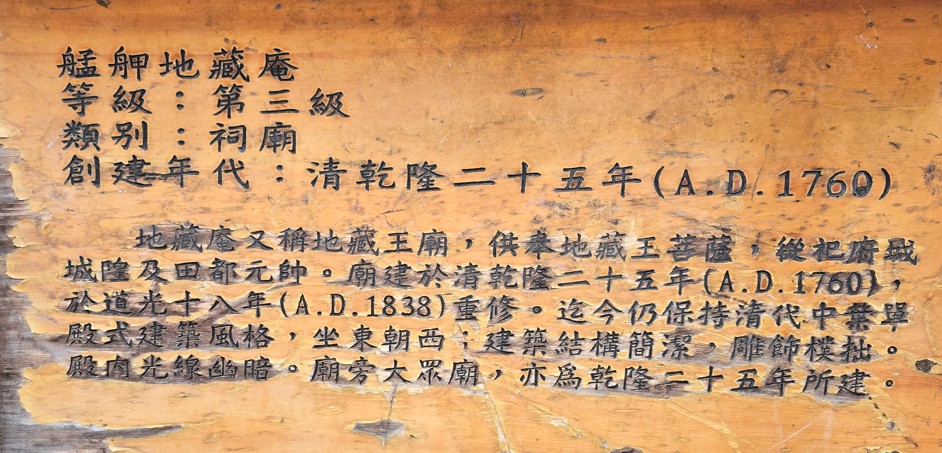 艋舺地藏庵
等級：第三級
類別：祠廟
創建年代：清乾隆二十五年(A.D.1760)
地藏庵又稱地藏王廟，供奉地藏王菩薩，從祀府城
城隍及田都元帥。廟建於清乾隆二十五年(A.D.1760)，
於道光十八年(A.D.1838)重修。迄今仍保持清代中葉單
殿式建築風格，坐東朝西；建築結構簡潔，雕飾樸拙。
殿內光線幽暗。廟旁大眾廟，亦為乾隆二十五年所建。